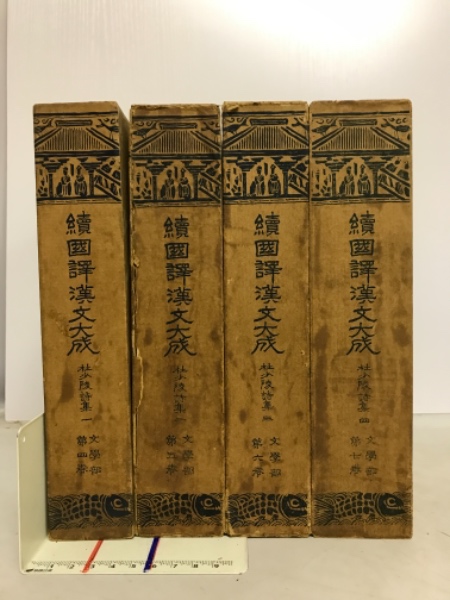 續國譯漢文大成
杜少陵詩集 一
文學部
第四卷
續國譯漢文大成
杜少陵詩集
文學部
第五卷
續國譯漢文大成
杜少陵詩集 三
文學部
第六卷
續國譯漢文大成
杜少陵詩集 四
文學部
第七卷
1 2 3 4 5 6 7 8 9